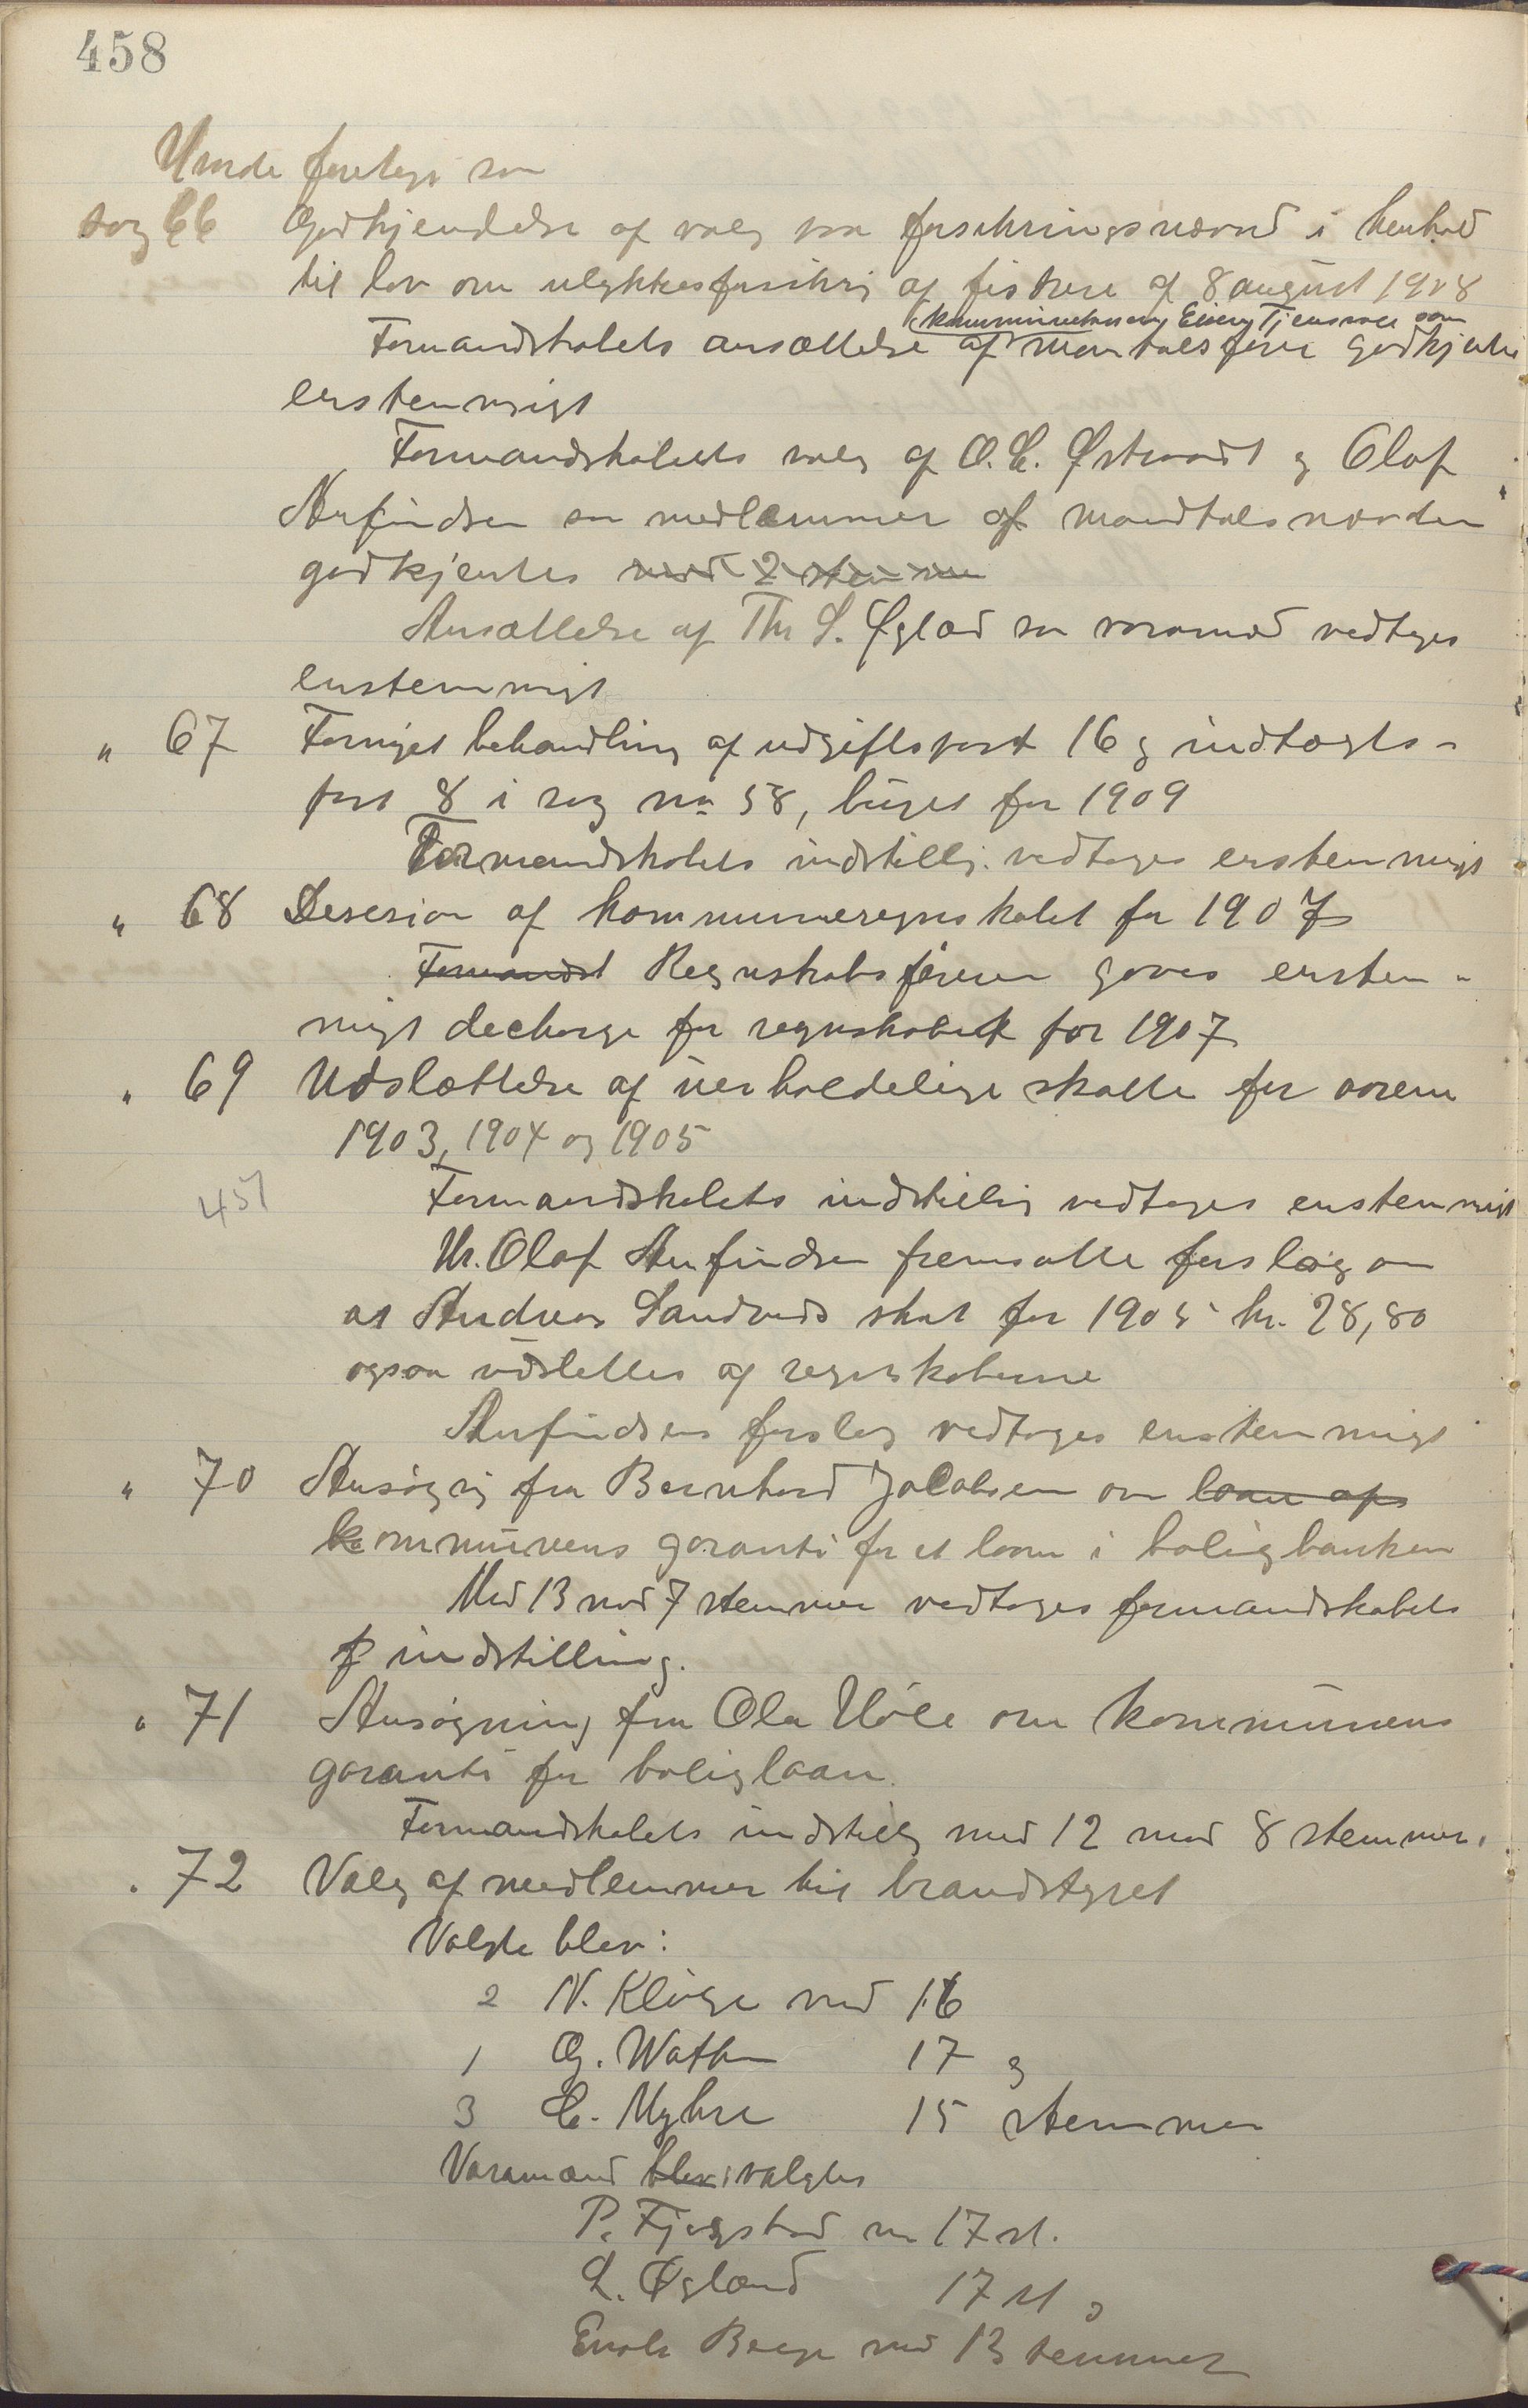 458
foretoges
sag 66 Godkjendelse af valg paa forsikringsnævnd i henhold
til lov om ulykkesforsikring af fiskere af 8 august 1908
som
Formandskabets ansættelse af mantalsfører godkjentes
enstemmigt
Formandskabets valg af O. C. Østraadt og Olaf
Anfindsen som medlemmer af mandtalsnævnden
godkjentes med 2 stemmer
Ansættelse af Th S. Øglænd som varamand vedtoges
enstemmigt
" 67 Fornyet behandling af udgiftspost 16 og indtægts-
post 8 i sag no 58, budget for 1909
Formandskabets indstilling vedtoges enstemmigt
" 68 Desesion af kommuneregnskabet for 1907
Formandsk Regnskabsføreren gaves enstem-
migt decharge for regnskabet for 1907
" 69 Udslættelse af uerholdelige skatte for aarene
1903, 1904 og 1905
457 Formandskabets indstilling vedtoges enstemmigt
Hr. Olaf Anfindsen fremsatte forslag om
at Andreas Sandveds skat for 1905 kr. 28,80
ogsaa udslettes af regnskaberne
Anfindsens forslag vedtoges enstemmigt
" 70 Ansøgning fra Bernhard Jacobsen om laan af
kommunens garanti for et laan i boligbanken
Med 13 mod 7 stemmer vedtoges formandskabets
indstilling.
" 71 Ansøgning fra Ola om kommunens
garanti for boliglaan.
Formandskabets indstilling med 12 mod 8 stemmer.
" 72 Valg af medlemmer til brandstyret
Valgte blev:
2 N. Kluge med 16
1 G. Wathne 17 og
3 C. Myhre 15 stemmer
Varamænd blev valgtes
P. Fjogstad m 17 st.
L. Øglænd 17 st og
Enok Berge med 13 stemmer